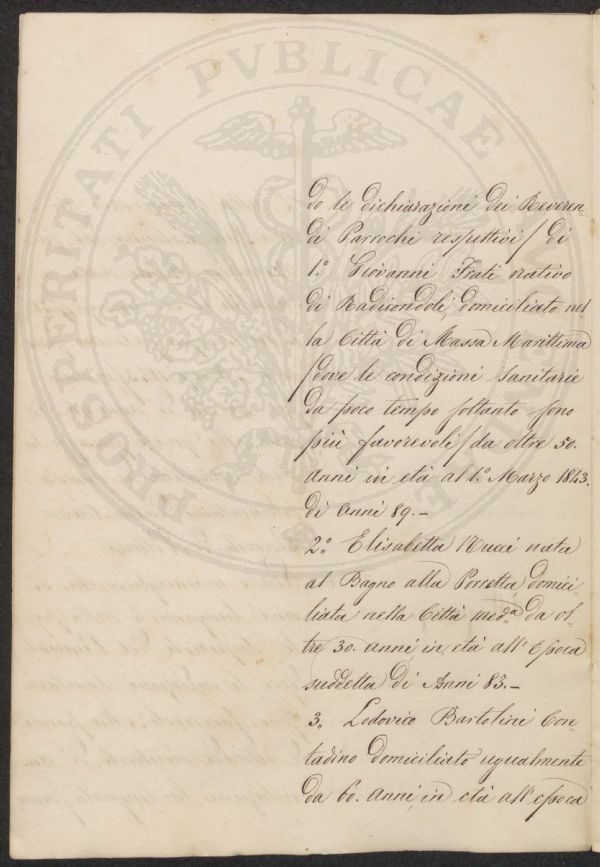 do le dichiarazioni dei Reveren-
di Parrochi respettivi / di
1.° Giovanni Frati nativo
di Radicondoli, domiciliato nel
la Città di Massa Marittima
/ dove le condizioni sanitarie
da poco tempo soltanto sono
più favorevoli / da oltre 50.
anni in età al 1.° Marzo 1843.
di Anni 89.-
2.° Elisabetta Nucci nata
al Bagno alla Porretta, domici-
liata nella Città med.a da ol-
tre 30. anni in età all' Epoca
suddetta di Anni 83.-
3. Lodovico Bartolini Con-
tadino domiciliato ugualmente
da 60. anni, in età all' epoca
PROSPERITATI PVBLICAE